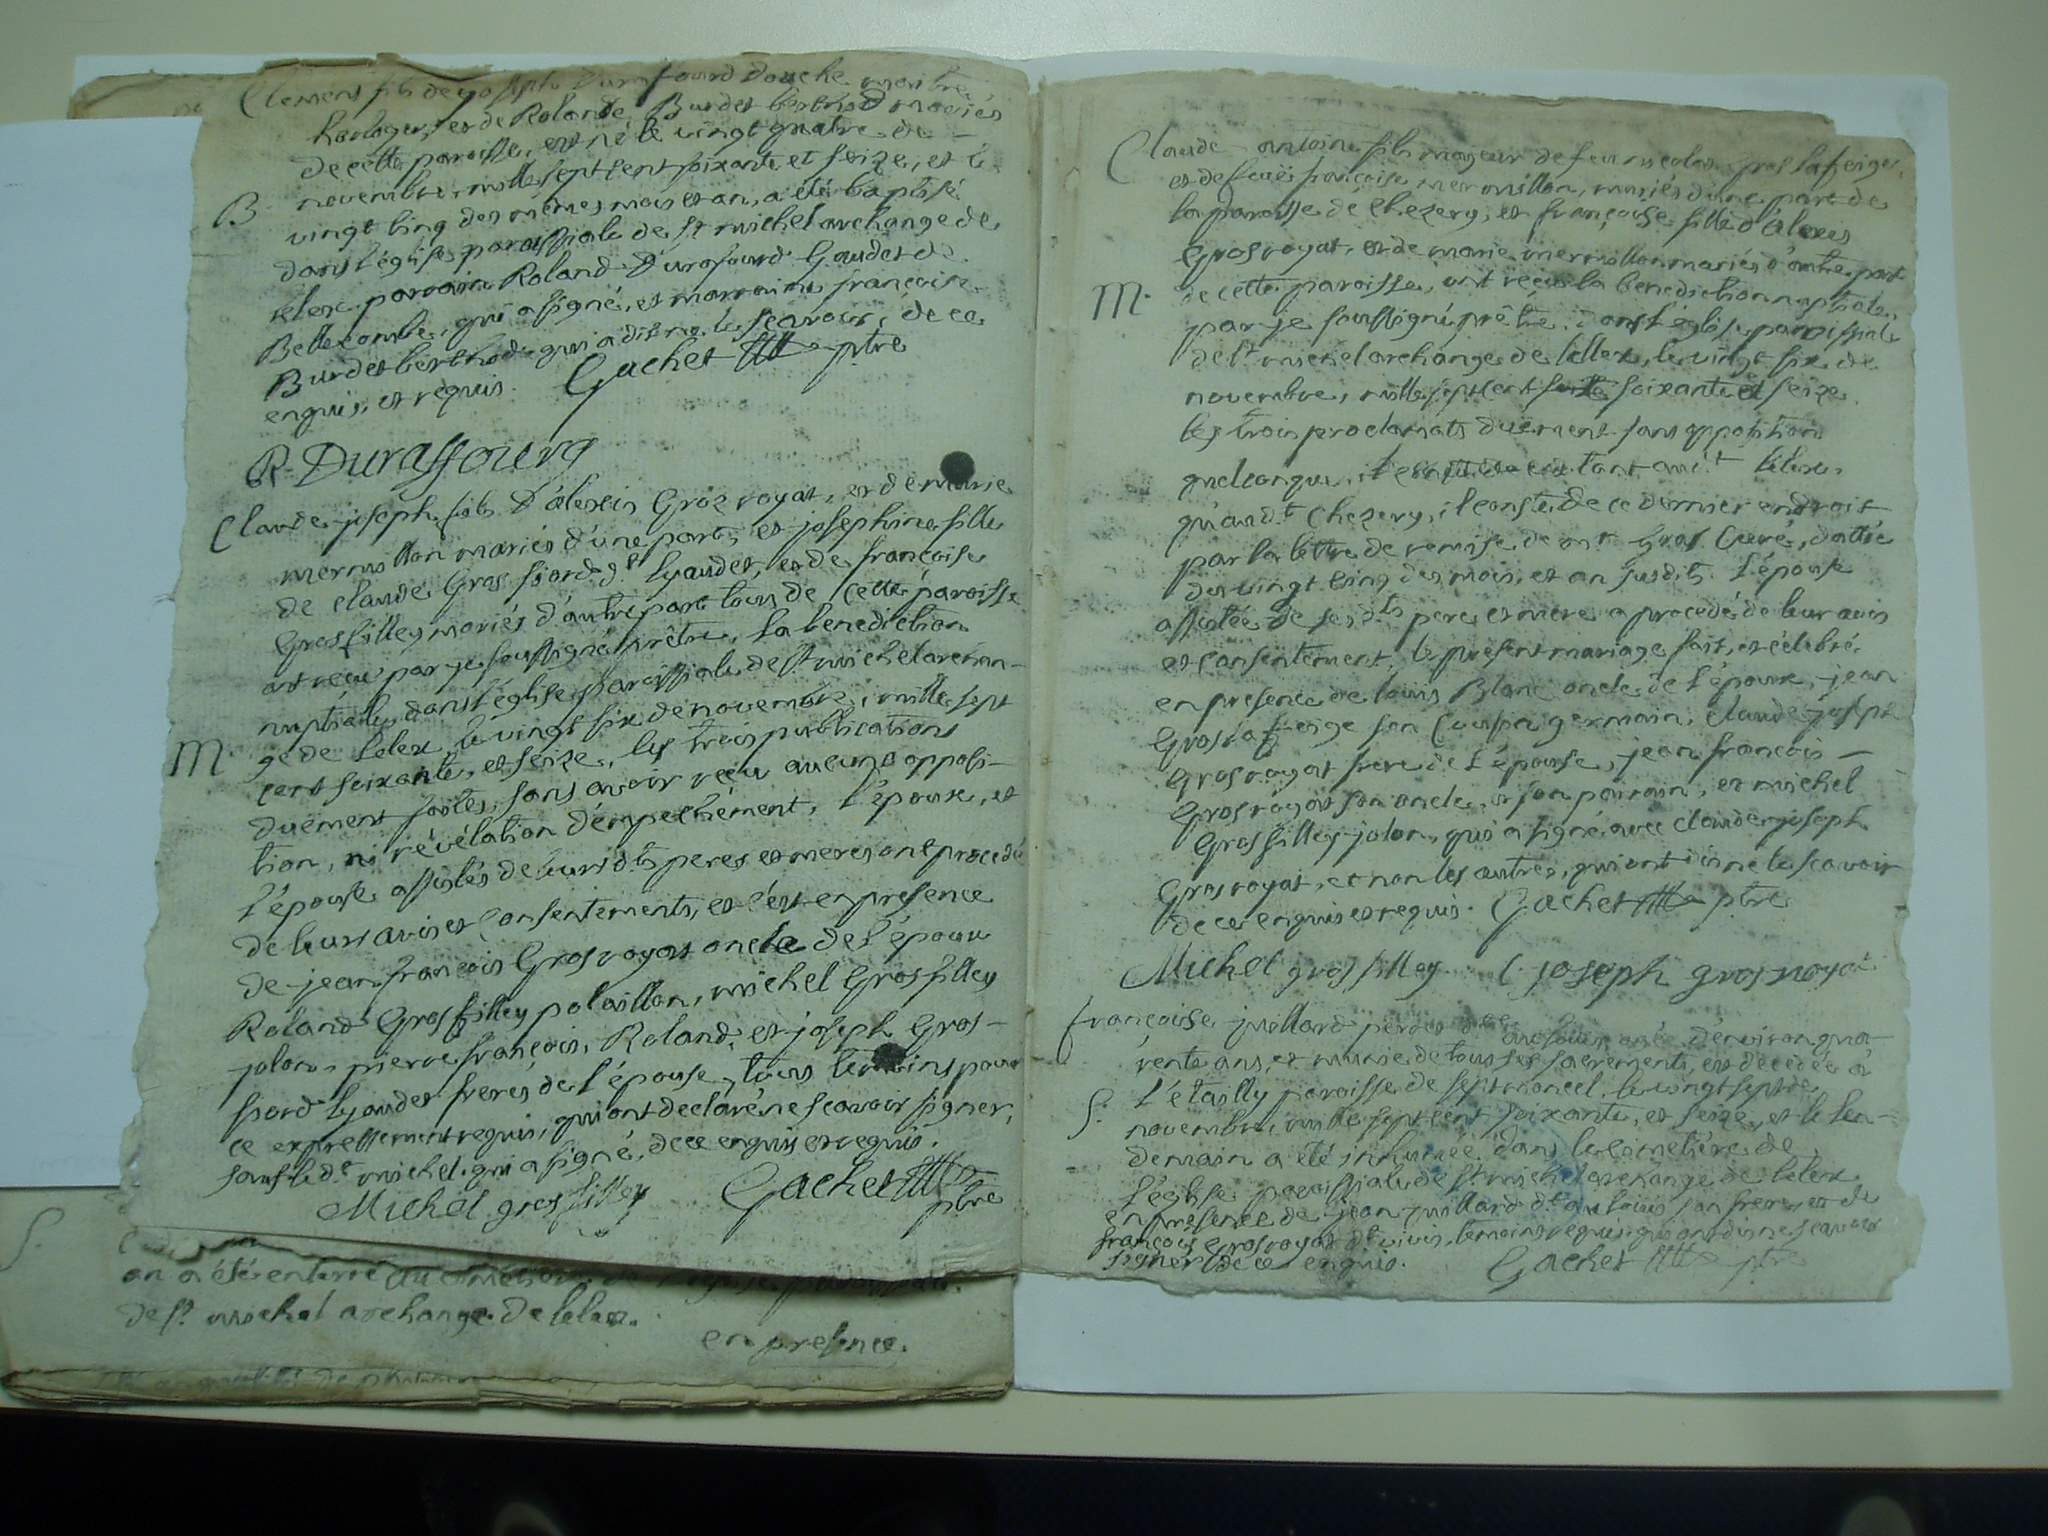 Clement fils de joseph Durafourd Douche maitre
horloger, et de Rolande Burdet berthod mariés
de cette paroisse, est né le vingt quatre de
novembre, mille sept cent soixante et seize, et le
B.
vingt cinq des mêmes mois et an, a été baptisé
dans l'église paroissiale de st michel archange de
lelex. parrain Roland Durafourd Gaudet de
Bellecombe, qui a signé, et marraine françoise
Burdet berthod qui a dit ne le scavoir, de ce
enquis, et requis. Gachet ptre
R. Duraffourg
Claude joseph fils d'alexis Gros royat, et de marie
mermillon mariés d'une part, et josephine fille
de claude Gros fiord dt lyaudet, et de françoise
Grosfilley mariés d'autre part tous de cette paroisse
ont reçu par je soussigné prêtre, la benediction
nuptiale, dans l'église paroissiale de st michel archan-
M.
ge de lelex le vingt six de novembre, mille sept
cent soixante, et seize, les trois publications
duement faites, sans avoir reçu aucune opposi-
tion, ni révélation d'empechément, l'époux, et
l'épouse assistés de leurs dts peres et meres ont procedé
de leurs avis et consentements, et c'est en presence
de jean françois Gros royat oncle de l'époux
Roland Grosfilley polaillon, michel Grosfilley
jolon, pierre françois, Roland, et joseph Gros-
fiord lyaudet freres de l'épouse, tous temoins pour
ce expressement requis, qui ont declaré ne scavoir signer,
sauf le dt michel qui a signé, de ce enquis et requis.
Michel gros filley Gachet ptre
S.
an a été enterré au cimetiere de l'église
de st michel archange de lelex.
en presence.
Claude antoine fils majeur de feu nicolas gros lafeige,
et de feuë françoise mermillon, mariés d'une part de
la paroisse de chezery, et françoise fille d'alexis
Gros royat, et de marie mermillon mariés d'autre part
M.
de cette paroisse, ont reçus la benediction nuptiale,
par je soussigné prêtre, dans l'église paroissiale
de st michel archange de lellex, le vingt six de
novembre, mille sept cent soixante et seize
les trois proclamats duement sans opposition
quelconque, tant au dt lélex,
qu'au dt chezery, il conste de ce dernier endroit
par la lettre de remise de mr Gros Curé, dattée
du vingt cinq des mois, et an susdits. L'épouse
assistée de ses dts pere et mere a procedé de leur avis
et consentement, le present mariage fait, et célebré
en presence de louis Blanc oncle de l'époux, jean
Gros lafeige son cousin germain, claude joseph
Gros royat frere de l'épouse, jean françois
Gros royat son oncle, et son parrain, et michel
Grosfilley jolon, qui a signé avec claude joseph
Gros royat, et non les autres, qui ont dit ne le scavoir
de ce enquis et requis. Gachet ptre
Michel gros filley C. joseph gros royat
françoise juillard âgée d'environ qua-
rente ans, et munie de tous ses sacrements, est decedée à
l'étailly paroisse de septmoncel, le vingt sept de
S.
novembre, mille sept cent soixante, et seize, et le len-
demain a été inhumée dans le cimetière de
l'église paroissiale de st michel archange de lelex
en presence de jean juillard dt son frere, et de
françois Gros royat dt vivis, temoins requis qui ont dit ne scavoir
signer de ce enquis. Gachet ptre